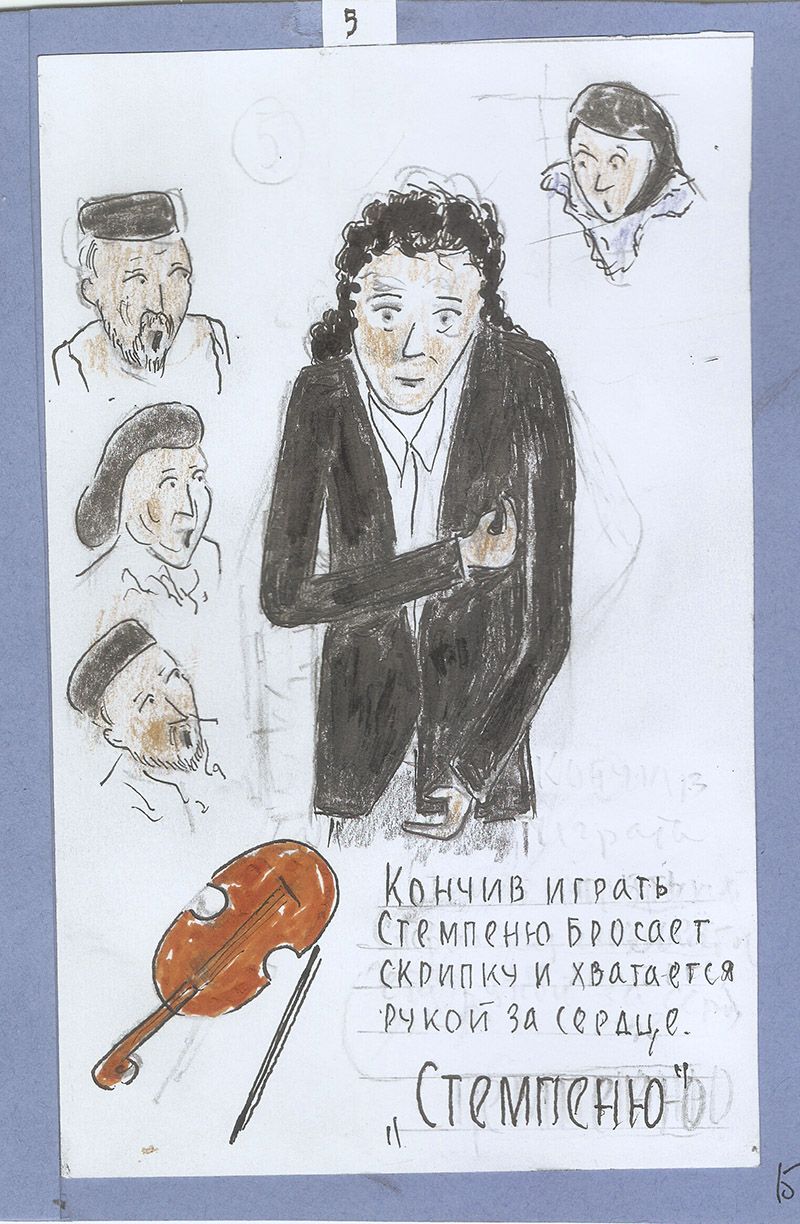 5
5
Кончив играть
Стемпеню бросает
скрипку и хватается
рукой за сердце.
„Стемпеню"
15